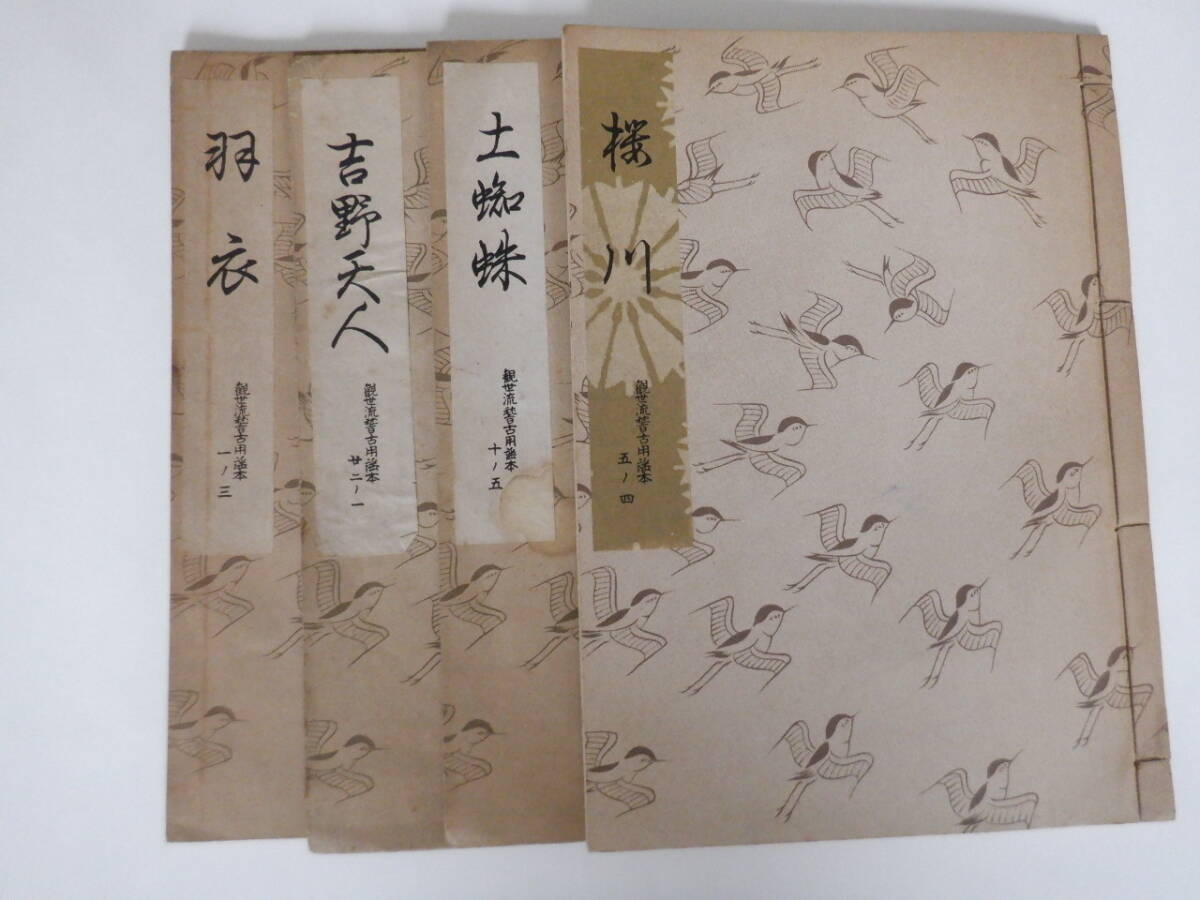 桜川
観世流稽古用謡本
五ノ四
土蜘蛛
観世流稽古用謡本
十ノ五
吉野天人
観世流稽古用謡本
廿二ノ一
羽衣
観世流稽古用謡本
一ノ三